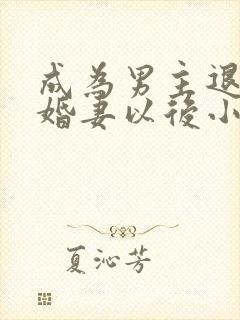 成為男主退
婚妻以後小
夏沁芳